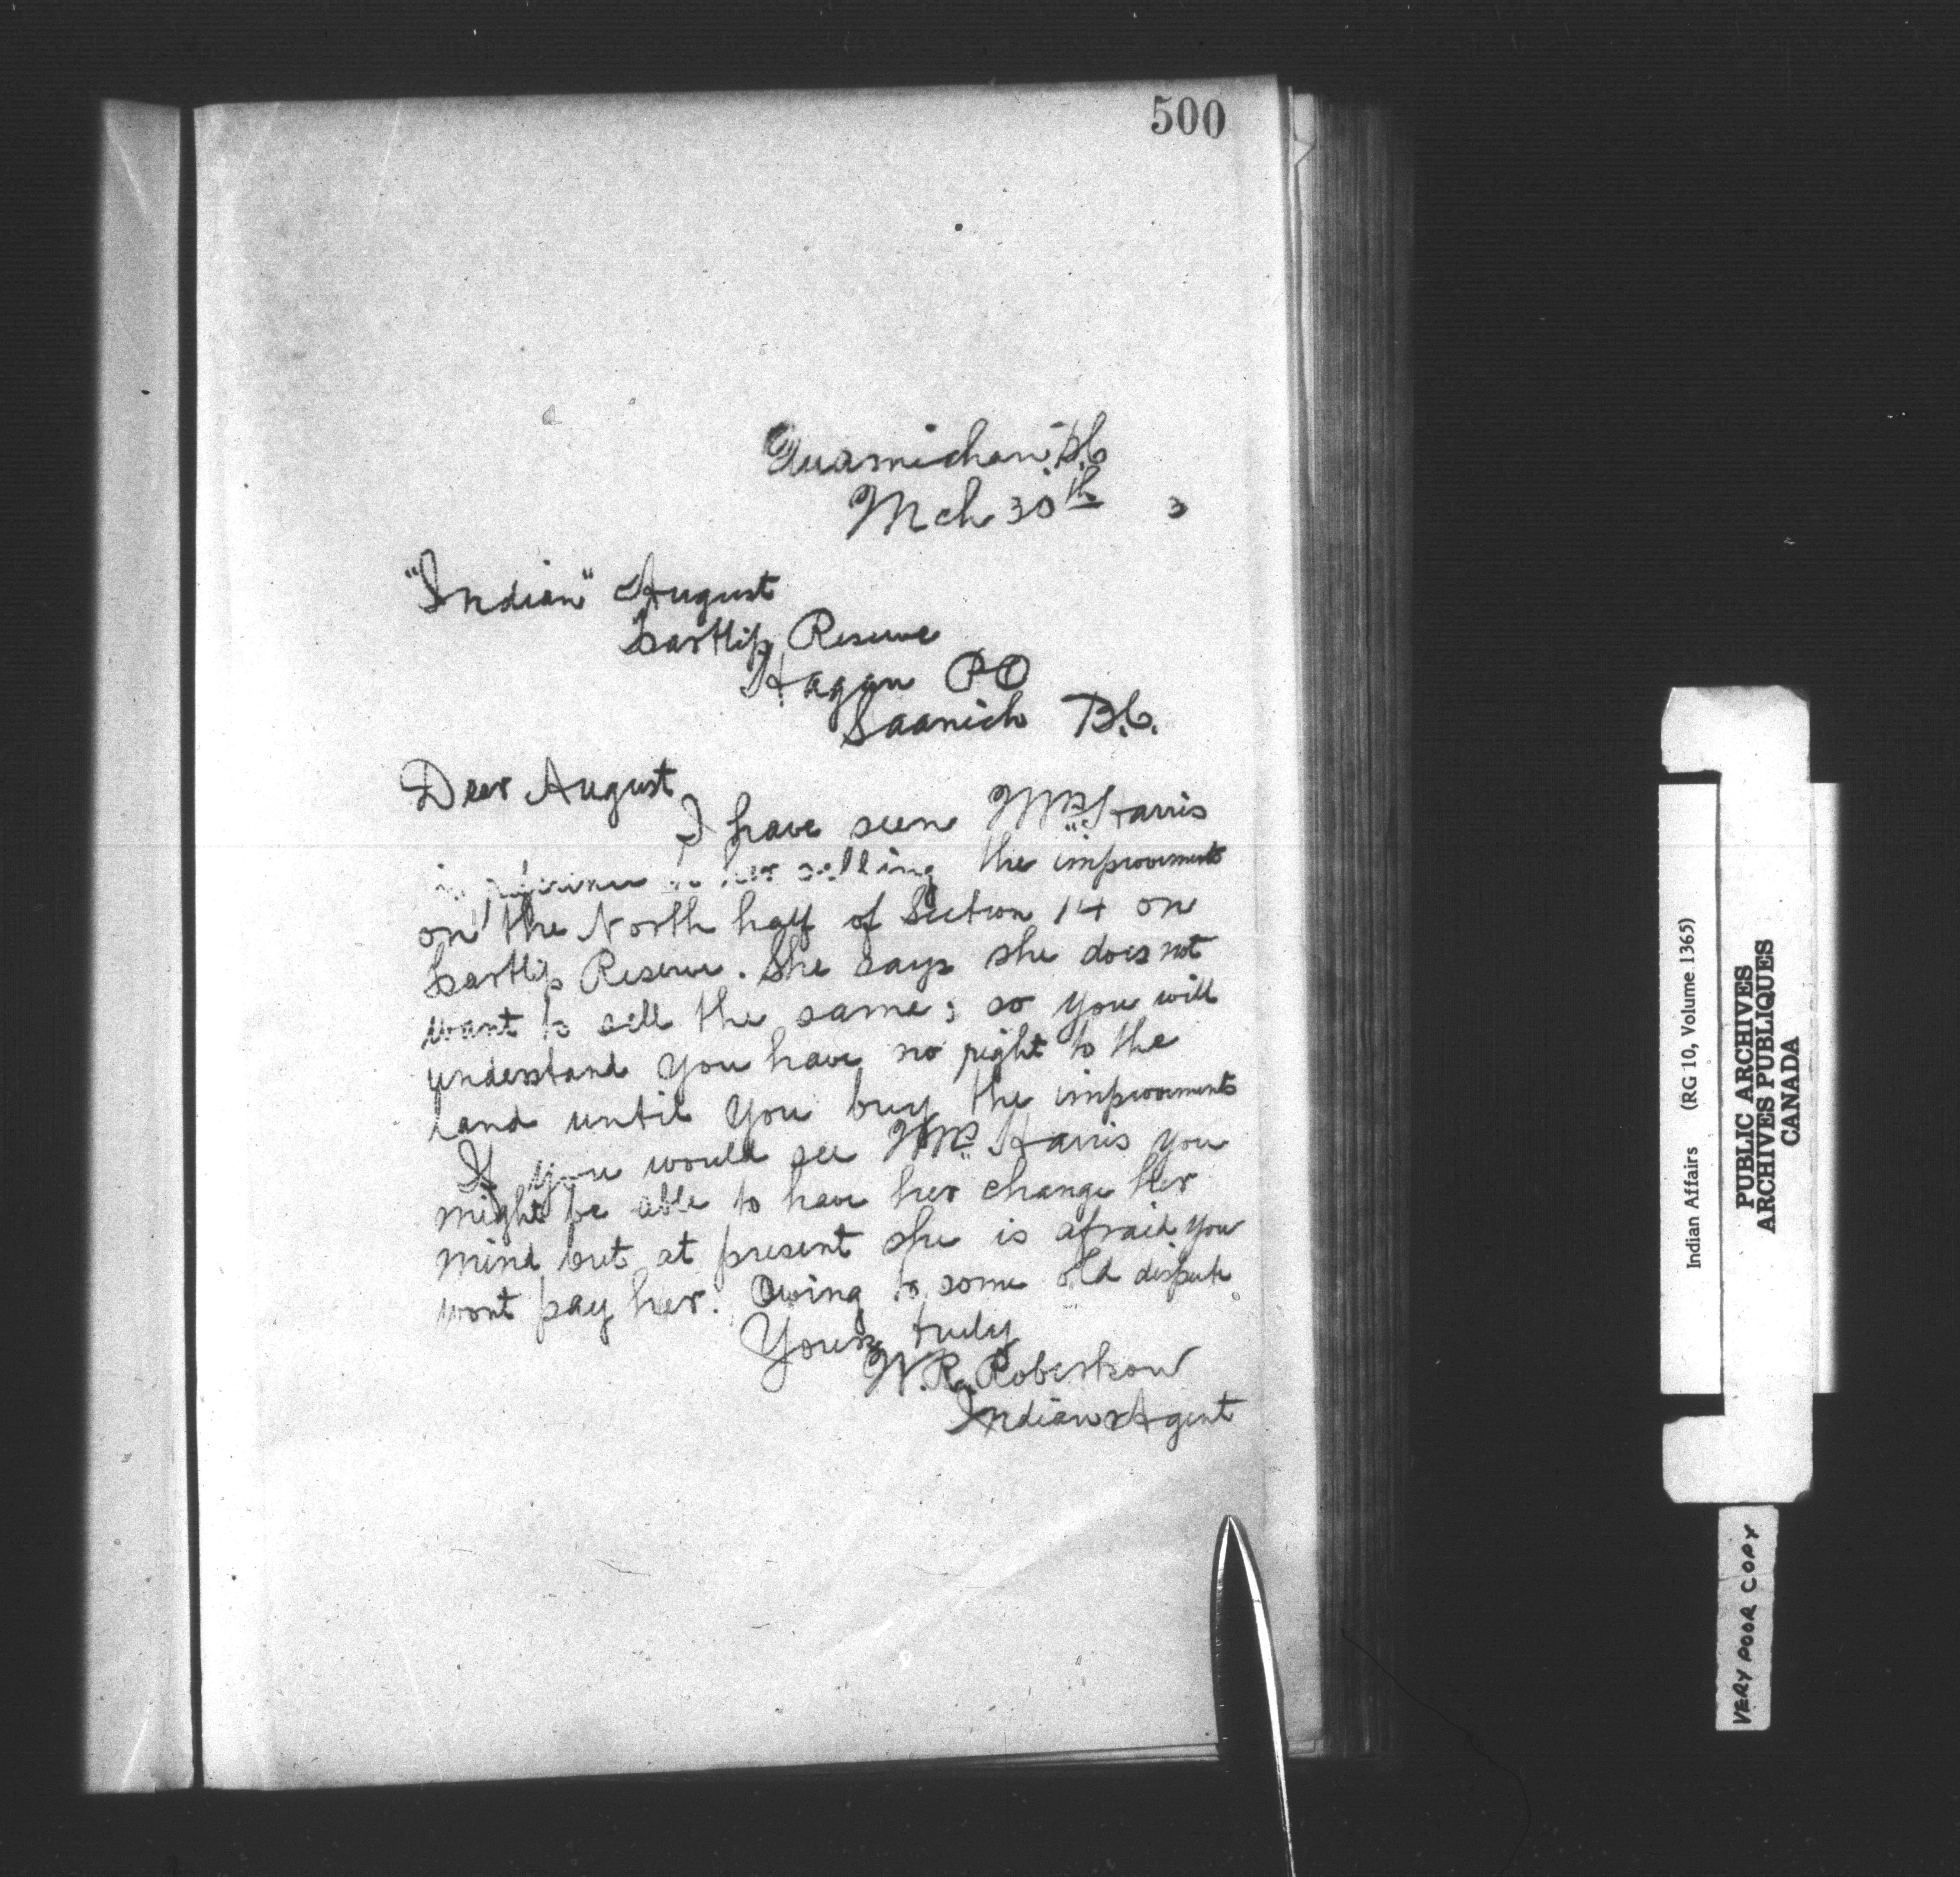 500
Quamichan B.C
Mch 30th 3
"Indian" August
Tsartlip Reserve
Hagan PO
Saanich B.C.
Dear August
I have seen Mrs. Harris
in reference to her selling the improvements
on the North half of Section 14 on
Tsartlip Reserve. She says she does not
want to sell the same; so you will
understand you have no right to the
land until you buy the improvements
If you would see Mrs. Harris you
might be able to have her change her
mind but at present she is afraid you
wont pay her. Owing to some old dispute.
Yours truly
W.R. Robertson
Indian Agent
Indian Affairs (RG 10, Volume 1365)
PUBLIC ARCHIVES
ARCHIVES PUBLIQUES
CANADA
VERY POOR COPY